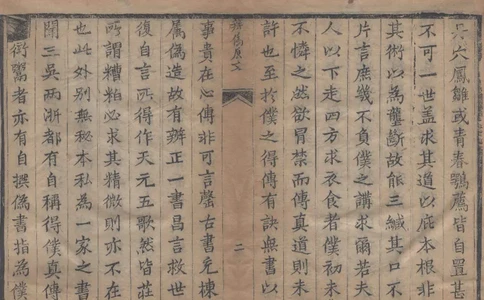 丹穴鳳雛或青春鸚薦皆自置甚
不可一世盖求其道以庇本根非
其術以為壟斷故能三緘其口不
片言庶幾不負僕之講求爾若夫
人以下走四方求衣食者僕初未
不憐之然欲冒禁而傳真道則未
許也至於僕之得傳有訣無書以
辨偽原文
二
事貴在心傳非可言罄古書充棟
属偽造故有辨正一書昌言救世
復自言所得作天元五歌然皆莊
所謂糟粕必求其精微則亦不在
也此外別無秘本私為一家之書
聞三吳两浙都有自稱得僕真傳
衒鬻者亦有自撰偽書指為僕